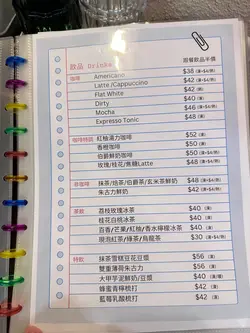 飲品 Drinks 跟餐飲品半價
咖啡 Americano $38 (凍+$4/杯)
Latte/Cappuccino $42 (凍+$4/杯)
Flat White $42 (熱)
Dirty $40 (凍)
Mocha $46 (凍+$4/杯)
Expresso Tonic $48 (凍)
咖啡特飲 紅柚湯力咖啡 $52 (凍)
香橙咖啡 $50 (凍)
伯爵鮮奶咖啡 $50 (凍)
玫瑰/桂花/焦糖Latte $48 (凍+$4/杯)
非咖啡 抹茶/焙茶/伯爵茶/玄米茶鮮奶 $48 (凍+$4/杯)
朱古力鮮奶 $42 (凍+$4/杯)
茶飲 荔枝玫瑰冰茶 $40 (凍)
桂花白桃冰茶 $40 (凍)
百香/芒果/紅柚/香水檸檬冰茶 $40 (凍)
現泡紅茶/綠茶/烏龍茶 $30 (凍+$4/杯)
特飲 抹茶雪糕豆花豆漿 $56 (凍)
雙重薄荷朱古力 $56 (凍)
大甲芋泥鮮奶/豆漿 $40 (凍)
蜂蜜青檸梳打 $42 (凍)
藍莓乳酸梳打 $42 (凍)